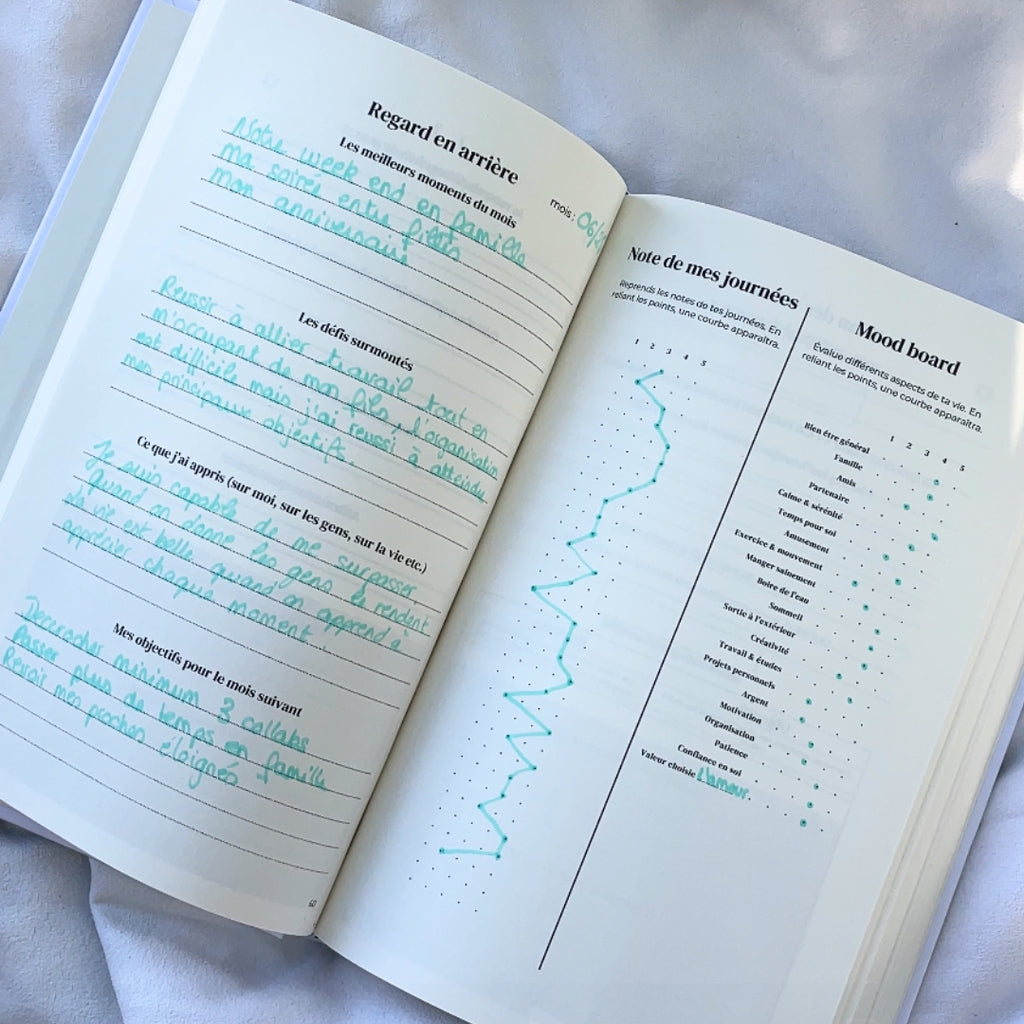 Regard en arrière
mois : 06/2
Les meilleurs moments du mois
Notre week end en famille
ma soirée entre filles
mon anniversaire
Les défis surmontés
Reussir à allier travail tout en
m'occupant de mon fils, l'organisation
est difficile mais j'ai reussi à atteindre
mes principaux objectifs.
Ce que j'ai appris (sur moi, sur les gens, sur la vie etc.)
Je suis capable de me surpasser
quand on donne les gens le rendent
la vie est belle quand on apprend à
apprécier chaque moment.
Mes objectifs pour le mois suivant
Decrocher minimum 3 collabs
Passer plus de temps en famille
Revoir mes proches éloignés
60
Note de mes journées
Reprends les notes de tes journées. En
reliant les points, une courbe apparaîtra.
1 2 3 4 5
Mood board
Évalue différents aspects de ta vie. En
reliant les points, une courbe apparaîtra.
1 2 3 4 5
Bien être général
Famille
Amis
Partenaire
Calme & sérénité
Temps pour soi
Amusement
Exercice & mouvement
Manger sainement
Boire de l'eau
Sommeil
Sortie à l'extérieur
Créativité
Travail & études
Projets personnels
Argent
Motivation
Organisation
Patience
Confiance en soi
Valeur choisie L'amour